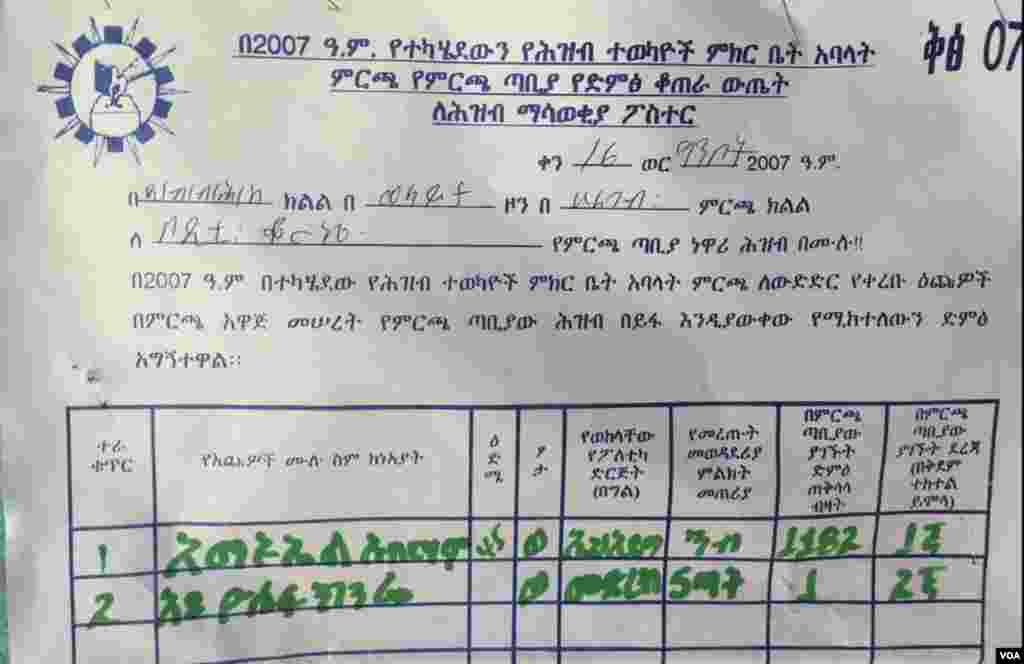 ቅፅ 07
በ2007 ዓ.ም. የተካሄደውን የሕዝብ ተወካዮች ምክር ቤት አባላት
ምርጫ የምርጫ ጣቢያ የድምፅ ቆጠራ ውጤት
ለሕዝብ ማሳወቂያ ፖስተር
ቀን 16 ወር ግንቦት 2007 ዓ.ም.
በ ክልል በ ዞን በ ምርጫ ክልል
ለ የምርጫ ጣቢያ ነዋሪ ሕዝብ በሙሉ!!
በ2007 ዓ.ም በተካሄደው የሕዝብ ተወካዮች ምክር ቤት አባላት ምርጫ ለውድድር የቀረቡ ዕጩዎች
በምርጫ አዋጅ መሠረት የምርጫ ጣቢያው ሕዝብ በይፋ እንዲያውቀው የሚከተለውን ድምፅ
አግኝተዋል።
ተራ ቁጥር
የእጩዎች ሙሉ ስም ከነአያት
ዕድሜ
ፆታ
የወከላቸው የፖለቲካ ድርጅት (በግል)
የመረጡት መወዳደሪያ ምልክት መጠሪያ
በምርጫ ጣቢያው ያገኙት ድምፅ ጠቅላላ ብዛት
በምርጫ ጣቢያው ያገኙት ደረጃ (በቅደም ተከተል ይሞላ)
1 ወ ንብ 1182 1ኛ
2 ወ መድረክ 1 2ኛ
VOA